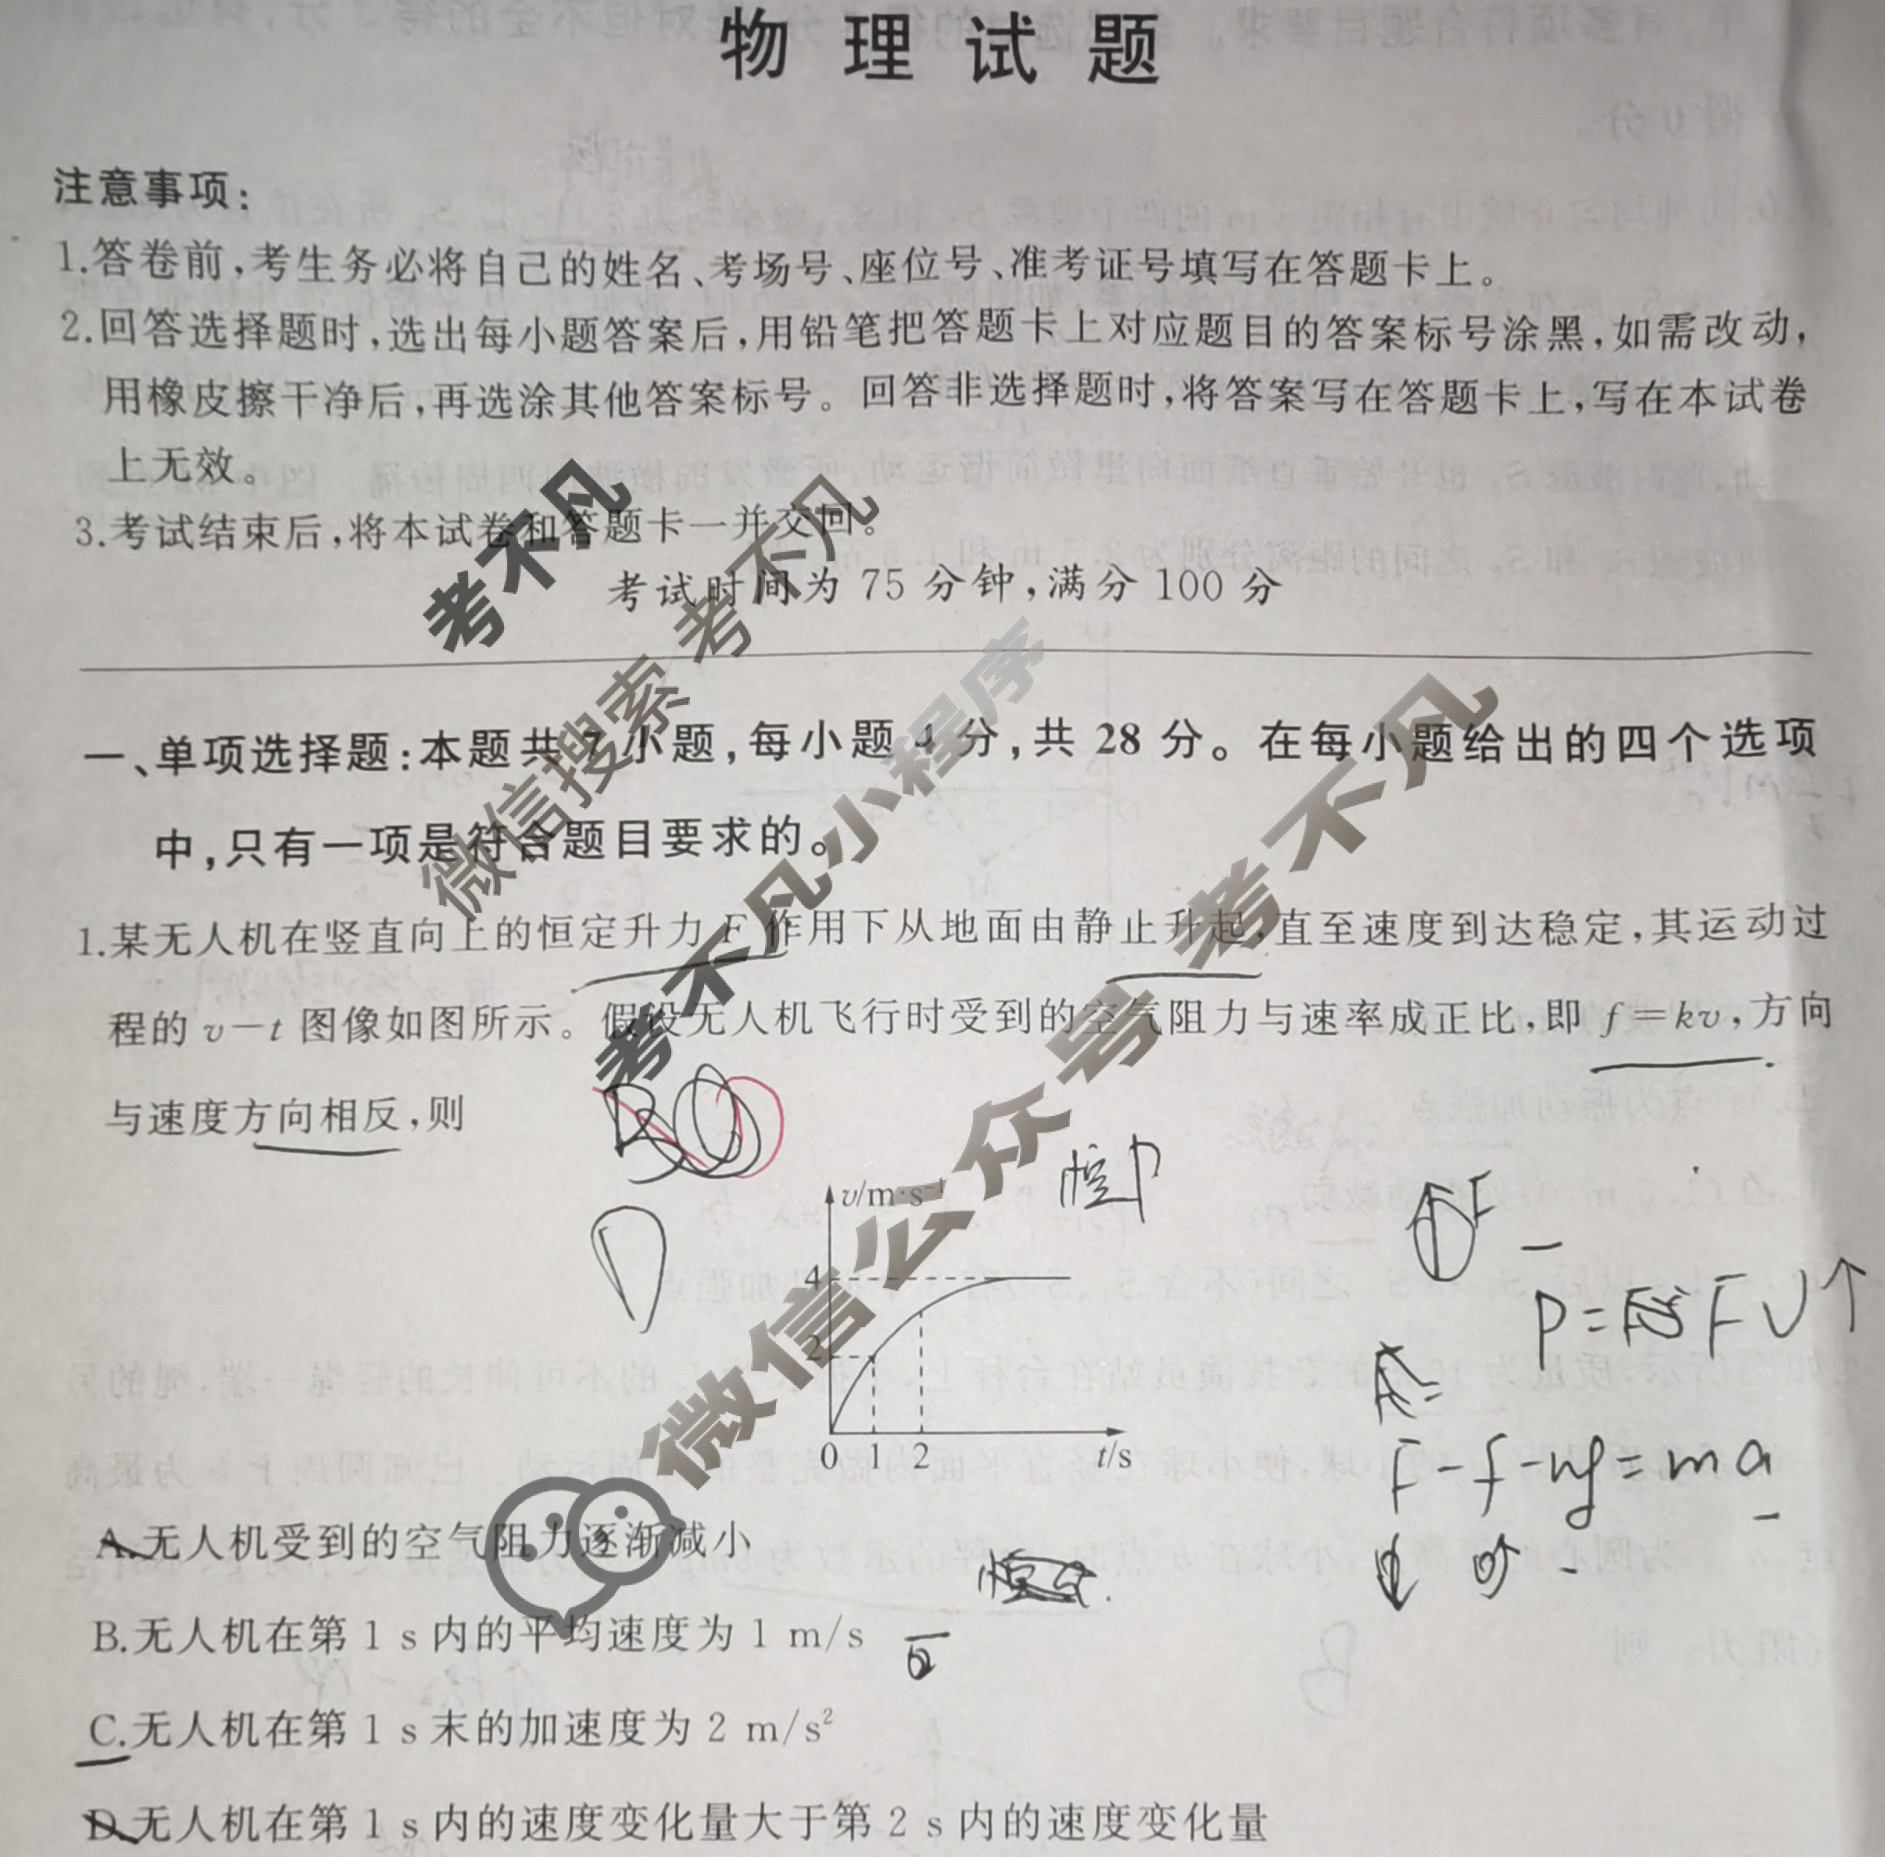 物理试题
注意事项:
1.答卷前,考生务必将自己的姓名、考场号、座位号、准考证号填写在答题卡上。
2.回答选择题时,选出每小题答案后,用铅笔把答题卡上对应题目的答案标号涂黑,如需改动,
用橡皮擦干净后,再选涂其他答案标号。回答非选择题时,将答案写在答题卡上,写在本试卷
上无效。
3.考试结束后,将本试卷和答题卡一并交回。
考试时间为 75 分钟,满分 100 分
考不凡
微信搜索 考不凡
考不凡小程序
微信公众号 考不凡
一、单项选择题:本题共 7 小题,每小题 4 分,共 28 分。在每小题给出的四个选项
中,只有一项是符合题目要求的。
1.某无人机在竖直向上的恒定升力 F 作用下从地面由静止升起,直至速度到达稳定,其运动过
程的 v-t 图像如图所示。假设无人机飞行时受到的空气阻力与速率成正比,即 f=kv,方向
与速度方向相反,则
恒P
v/m·s⁻¹
4
2
0 1 2 t/s
F
P= FV↑
F-f-mg=ma
A.无人机受到的空气阻力逐渐减小
B.无人机在第 1 s 内的平均速度为 1 m/s
C.无人机在第 1 s 末的加速度为 2 m/s²
D.无人机在第 1 s 内的速度变化量大于第 2 s 内的速度变化量